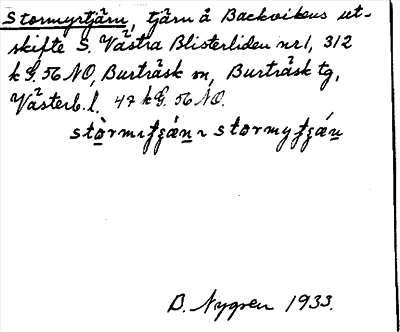 Stormyrtjärn, tjärn å Backvikens ut-
skifte S. Västra Blisterliden nr 1, 312
k G. 56 NO, Burträsk sn, Burträsk tg,
Västerb. l. 47 k G. 56 NO.
B. Nygren 1933.